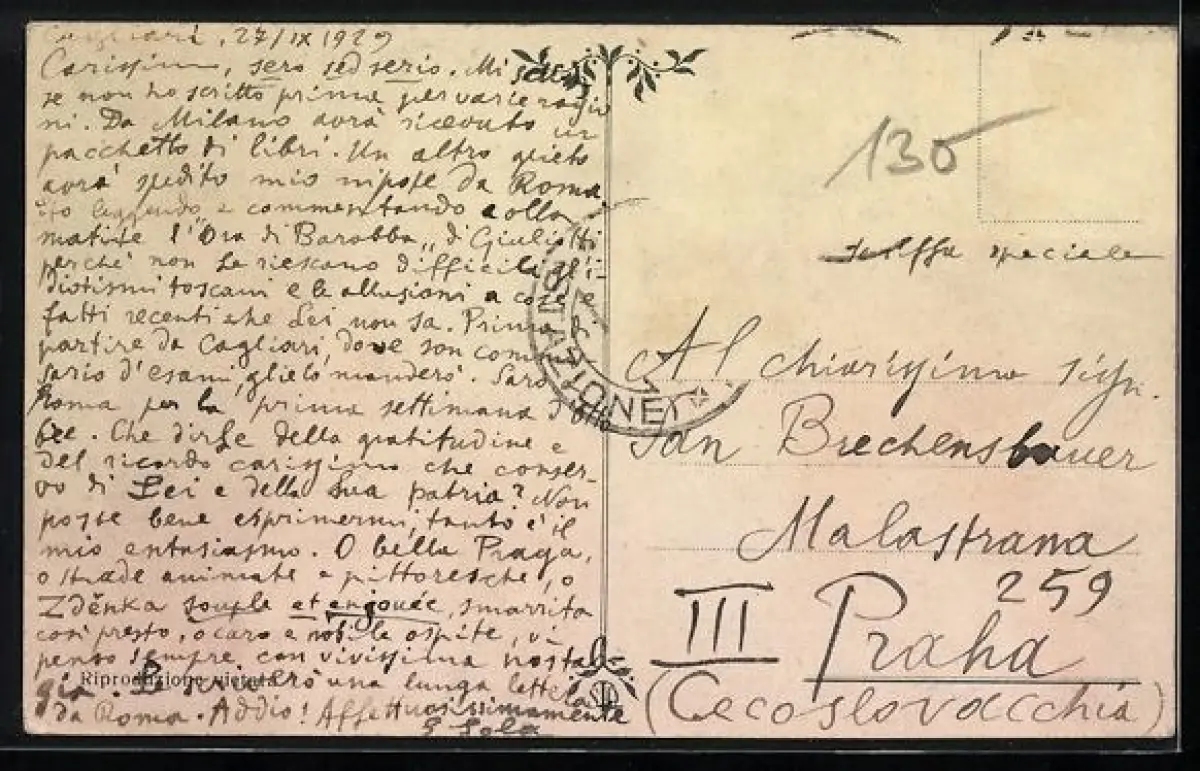 Cagliari, 27/IX 1929
Carissimo, sero sed serio. Mi scusi
se non ho scritto prima per varie ragio
ni. Da Milano avrà ricevuto un
pacchetto di libri. Un altro glielo
avrà spedito mio nipote da Roma
sto leggendo e commentando colla
matita l'"Ora di Barabba" di Giuliotti
perché non Le riescano difficili gl'i-
diotismi toscani e le allusioni a cose e
fatti recenti che Lei non sa. Prima di
partire da Cagliari, dove son commis
sario d'esami, glielo manderò. Sarò
Roma per la prima settimana d'otto
bre. Che dirle della gratitudine e
del ricordo carissimo che conser-
vo di Lei e della Sua patria? Non
posso bene esprimermi, tanto è il
mio entusiasmo. O bella Praga,
o strade animate e pittoresche, o
Zděnka souple et enjouée, smarrita
così presto, o caro e nobile ospite, vi
penso sempre con vivissima nostal-
gia. Le scriverò una lunga lettera
da Roma. Addio! Affettuosissimamente
Riproduzione vietata
130
speciale
Al chiarissimo sign.
Jan Brechensbauer
Malastrana
259
III Praha
(Cecoslovacchia)